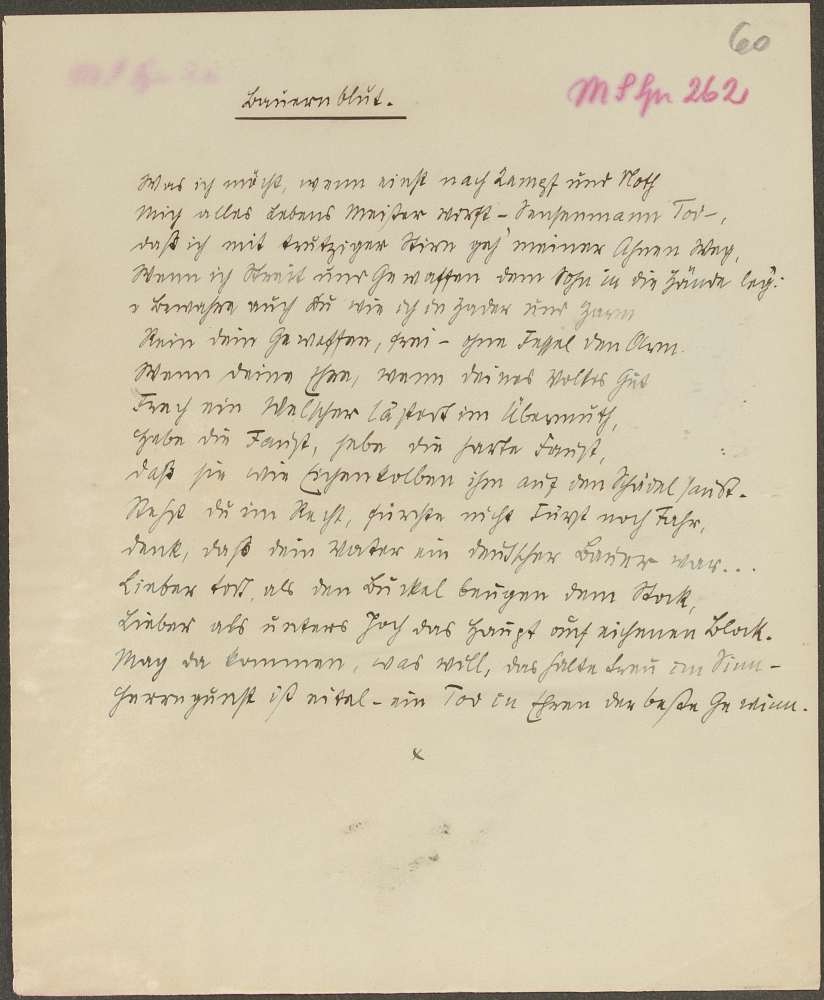 60
M S Hu 262
Bauernblut.
Was ich möcht, wenn einst nach Kampf und Noth
Mich alles Lebens Meister wirft – Sensenmann Tod –,
Daß ich mit trutziger Stirn geh' meiner Ahnen Weg,
Wenn ich Streit und Gewaffen dem Sohn in die Hände leg':
Bewahre auch du wie ich in Hader und Harm
Rein dein Gewaffen, frei – ohne Fessel den Arm.
Wenn deine Ehre, wenn deines Volkes Gut
Frech ein Welscher lästert im Übermuth,
Hebe die Faust, hebe die harte Faust,
Daß sie wie Eichenkolben ihm auf den Schädel saust.
Stehst du im Recht, fürchte nicht Fürst noch Fahr,
Denk, daß dein Vater ein deutscher Bauer war...
Lieber tot, als den Buckel beugen dem Stock,
Lieber als unters Joch das Haupt auf eichenen Block.
Mag da kommen, was will, das halte treu im Sinn –
Herrengunst ist eitel – ein Tod in Ehren der beste Gewinn.
x